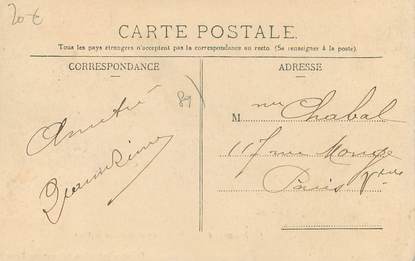 20€
CARTE POSTALE.
Tous les pays étrangers n'acceptent pas la correspondance au recto. (Se renseigner à la poste).
CORRESPONDANCE
ADRESSE
89
Amitié
Mme Chabal
117 rue Monge
Paris Vème